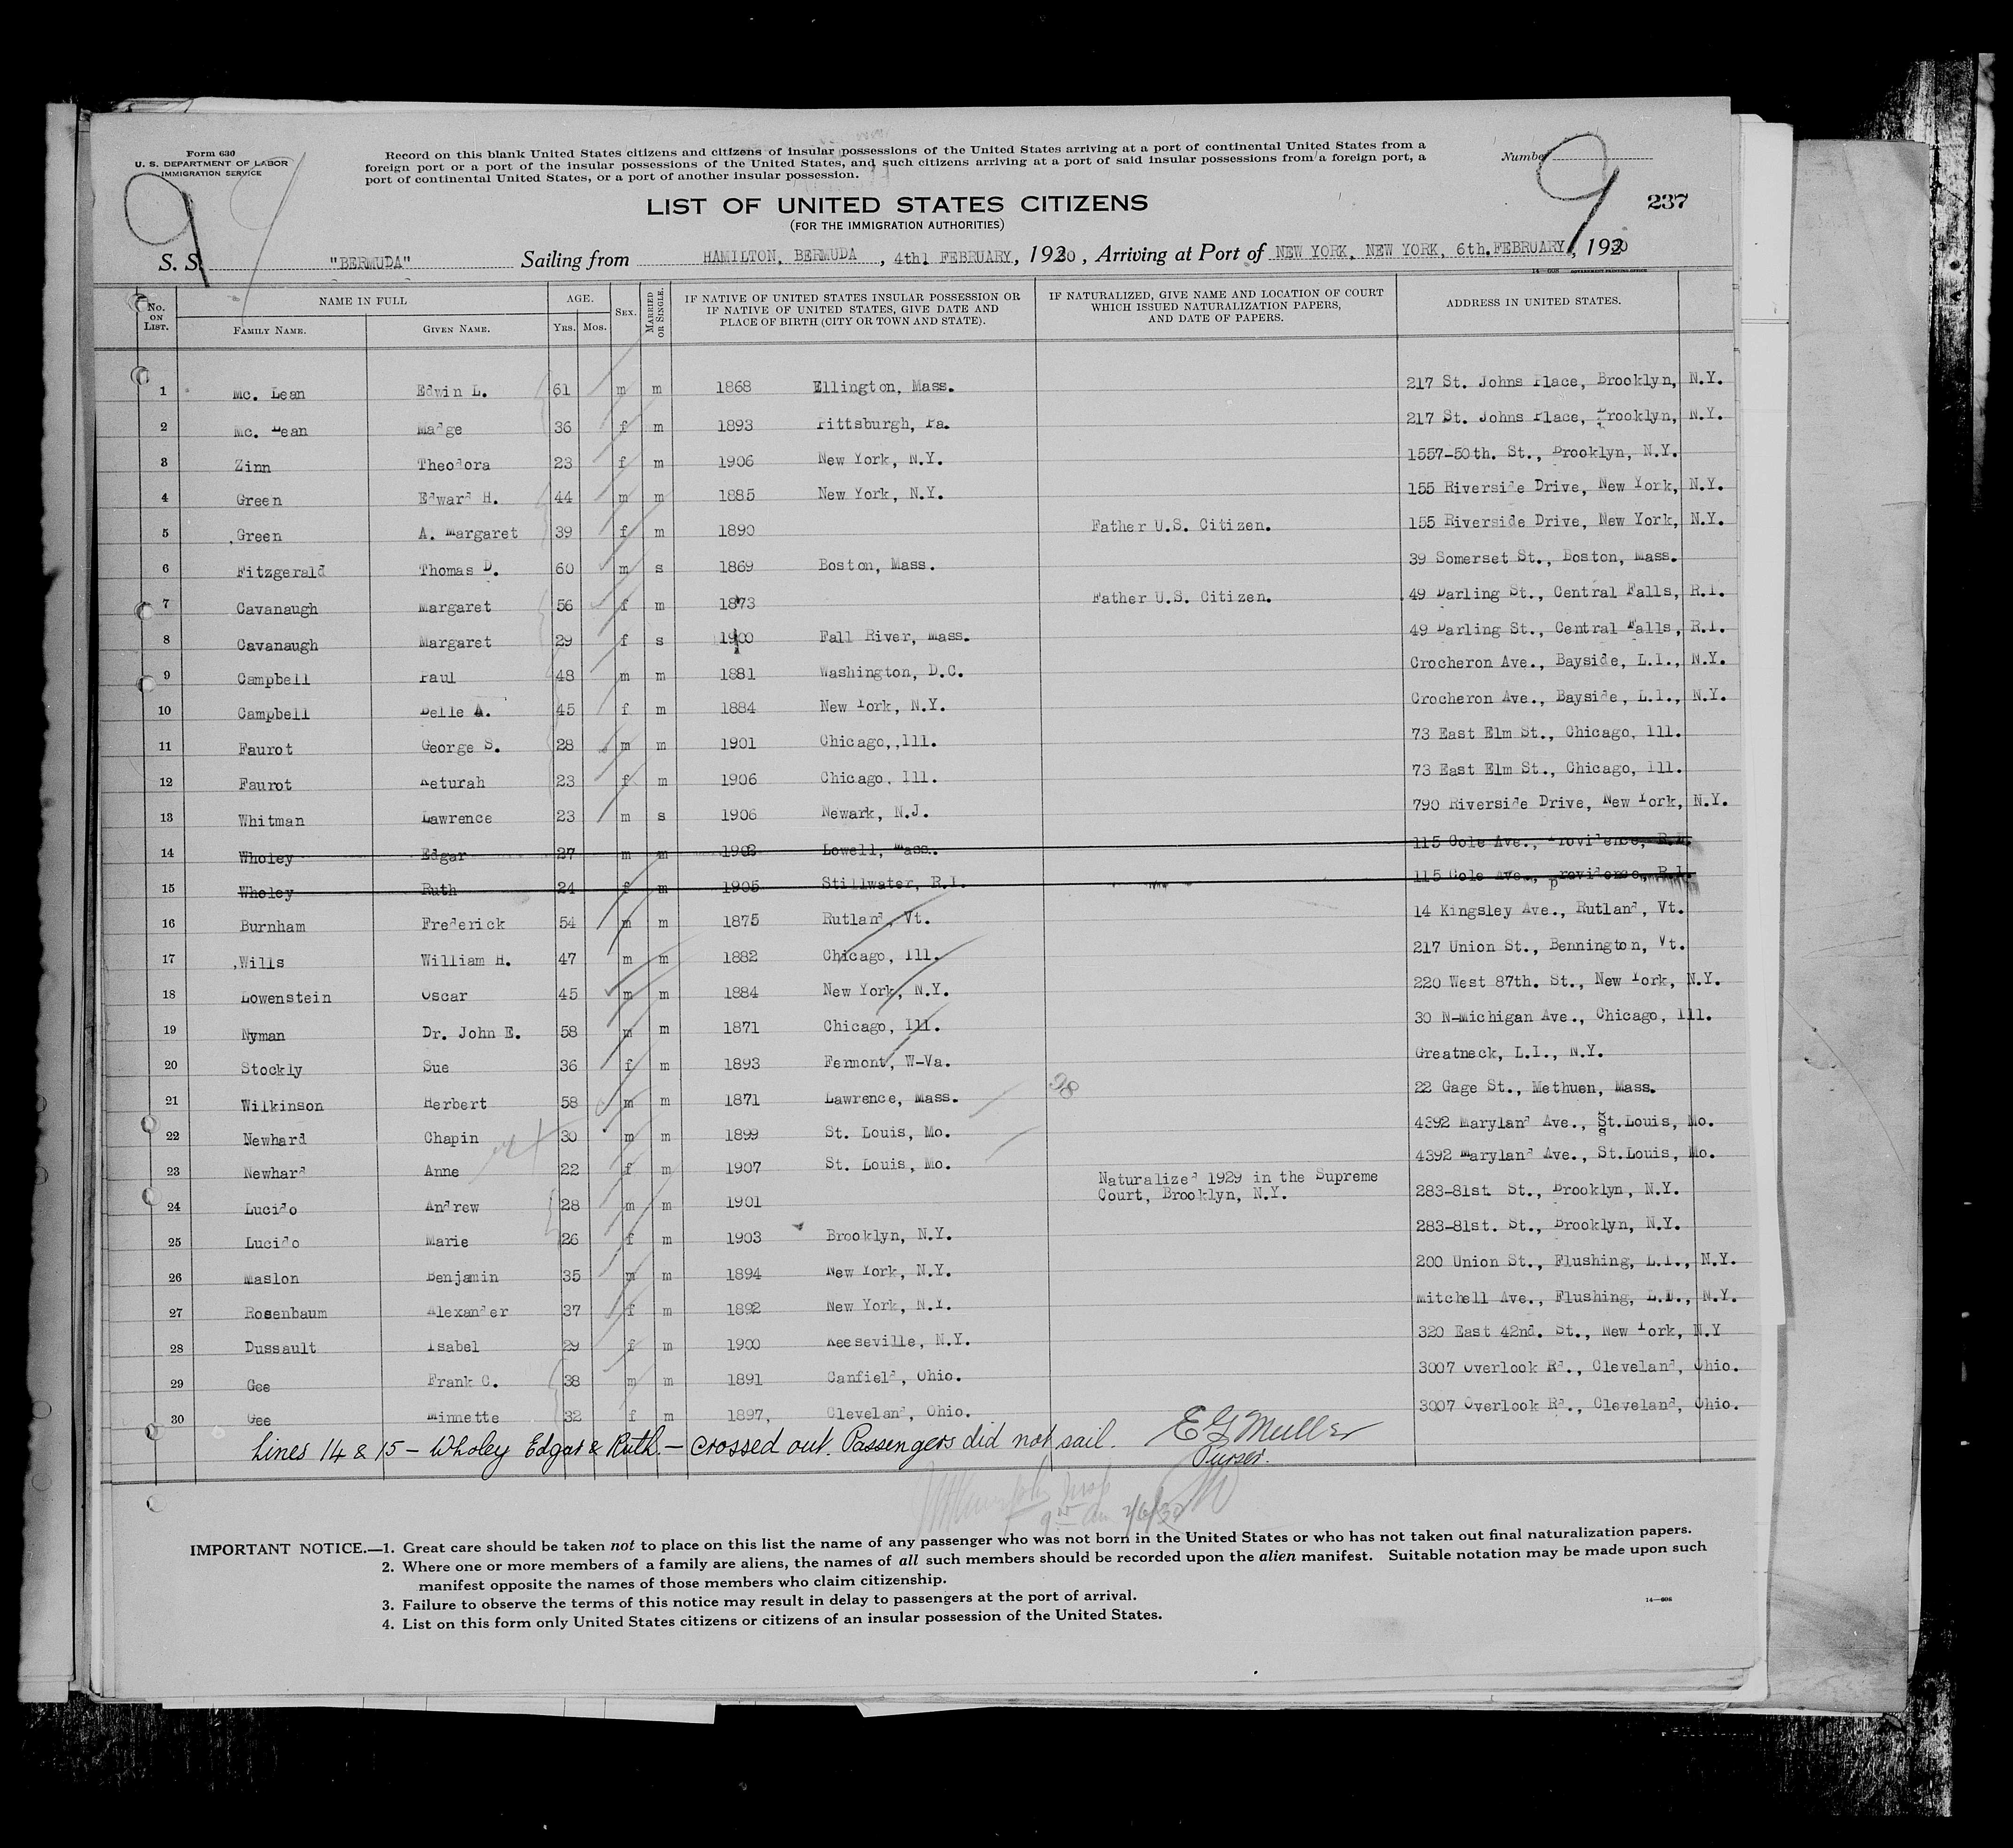 Form 630
U. S. DEPARTMENT OF LABOR
IMMIGRATION SERVICE
Record on this blank United States citizens and citizens of insular possessions of the United States arriving at a port of continental United States from a
foreign port or a port of the insular possessions of the United States, and such citizens arriving at a port of said insular possessions from a foreign port, a
port of continental United States, or a port of another insular possession.
Number 9
9
237
LIST OF UNITED STATES CITIZENS
(FOR THE IMMIGRATION AUTHORITIES)
S. S. "BERMUDA" Sailing from HAMILTON, BERMUDA, 4th. FEBRUARY, 1930, Arriving at Port of NEW YORK, NEW YORK, 6th. FEBRUARY, 1930
14—608 GOVERNMENT PRINTING OFFICE
No. ON LIST. NAME IN FULL FAMILY NAME. GIVEN NAME. AGE. YRS. MOS. SEX. MARRIED OR SINGLE. IF NATIVE OF UNITED STATES INSULAR POSSESSION OR IF NATIVE OF UNITED STATES, GIVE DATE AND PLACE OF BIRTH (CITY OR TOWN AND STATE). IF NATURALIZED, GIVE NAME AND LOCATION OF COURT WHICH ISSUED NATURALIZATION PAPERS, AND DATE OF PAPERS. ADDRESS IN UNITED STATES.
1 Mc. Lean Edwin L. 61 m m 1868 Ellington, Mass. 217 St. Johns Place, Brooklyn, N.Y.
2 Mc. Lean Madge 36 f m 1893 Pittsburgh, Pa. 217 St. Johns Place, Brooklyn, N.Y.
3 Zinn Theodora 23 f m 1906 New York, N.Y. 1557-50th. St., Brooklyn, N.Y.
4 Green Edward H. 44 m m 1885 New York, N.Y. 155 Riverside Drive, New York, N.Y.
5 Green A. Margaret 39 f m 1890 Father U.S. Citizen. 155 Riverside Drive, New York, N.Y.
6 Fitzgerald Thomas D. 60 m s 1869 Boston, Mass. 39 Somerset St., Boston, Mass.
7 Cavanaugh Margaret 56 f m 1873 Father U.S. Citizen. 49 Darling St., Central Falls, R.I.
8 Cavanaugh Margaret 29 f s 1900 Fall River, Mass. 49 Darling St., Central Falls, R.I.
9 Campbell Paul 48 m m 1881 Washington, D.C. Crocheron Ave., Bayside, L.I., N.Y.
10 Campbell Belle A. 45 f m 1884 New York, N.Y. Crocheron Ave., Bayside, L.I., N.Y.
11 Faurot George S. 28 m m 1901 Chicago,,Ill. 73 East Elm St., Chicago, Ill.
12 Faurot Keturah 23 f m 1906 Chicago, Ill. 73 East Elm St., Chicago, Ill.
13 Whitman Lawrence 23 m s 1906 Newark, N.J. 790 Riverside Drive, New York, N.Y.
14 Wholey Edgar 27 m m 1902 Lowell, Mass. 115 Cole Ave., Providence, R.I.
15 Wholey Ruth 24 f m 1905 Stillwater, R.I. 115 Cole Ave., Providence, R.I.
16 Burnham Frederick 54 m m 1875 Rutland, Vt. 14 Kingsley Ave., Rutland, Vt.
17 Wills William H. 47 m m 1882 Chicago, Ill. 217 Union St., Bennington, Vt.
18 Lowenstein Oscar 45 m m 1884 New York, N.Y. 220 West 87th. St., New York, N.Y.
19 Nyman Dr. John E. 58 m m 1871 Chicago, Ill. 30 N-Michigan Ave., Chicago, Ill.
20 Stockly Sue 36 f m 1893 Fermont, W-Va. Greatneck, L.I., N.Y.
21 Wilkinson Herbert 58 m m 1871 Lawrence, Mass. 28 22 Gage St., Methuen, Mass.
22 Newhard Chapin 30 m m 1899 St. Louis, Mo. 4392 Maryland Ave., St.Louis, Mo.
23 Newhard Anne 22 f m 1907 St. Louis, Mo. 4392 Maryland Ave., St.Louis, Mo.
24 Lucido Andrew 28 m m 1901 Naturalized 1929 in the Supreme Court, Brooklyn, N.Y. 283-81st. St., Brooklyn, N.Y.
25 Lucido Marie 26 f m 1903 Brooklyn, N.Y. 283-81st. St., Brooklyn, N.Y.
26 Maslon Benjamin 35 m m 1894 New York, N.Y. 200 Union St., Flushing, L.I., N.Y.
27 Rosenbaum Alexander 37 f m 1892 New York, N.Y. Mitchell Ave., Flushing, L.I., N.Y.
28 Dussault Isabel 29 f m 1900 Keeseville, N.Y. 320 East 42nd. St., New York, N.Y
29 Gee Frank C. 38 m m 1891 Canfield, Ohio. 3007 Overlook Rd., Cleveland, Ohio.
30 Gee Minnette 32 f m 1897, Cleveland, Ohio. 3007 Overlook Rd., Cleveland, Ohio.
Lines 14 & 15 – Wholey Edgar & Ruth. – crossed out. Passengers did not sail. E G Muller
Purser.
2/6/30
IMPORTANT NOTICE.—1. Great care should be taken not to place on this list the name of any passenger who was not born in the United States or who has not taken out final naturalization papers.
2. Where one or more members of a family are aliens, the names of all such members should be recorded upon the alien manifest. Suitable notation may be made upon such
manifest opposite the names of those members who claim citizenship.
3. Failure to observe the terms of this notice may result in delay to passengers at the port of arrival.
4. List on this form only United States citizens or citizens of an insular possession of the United States.
14—608